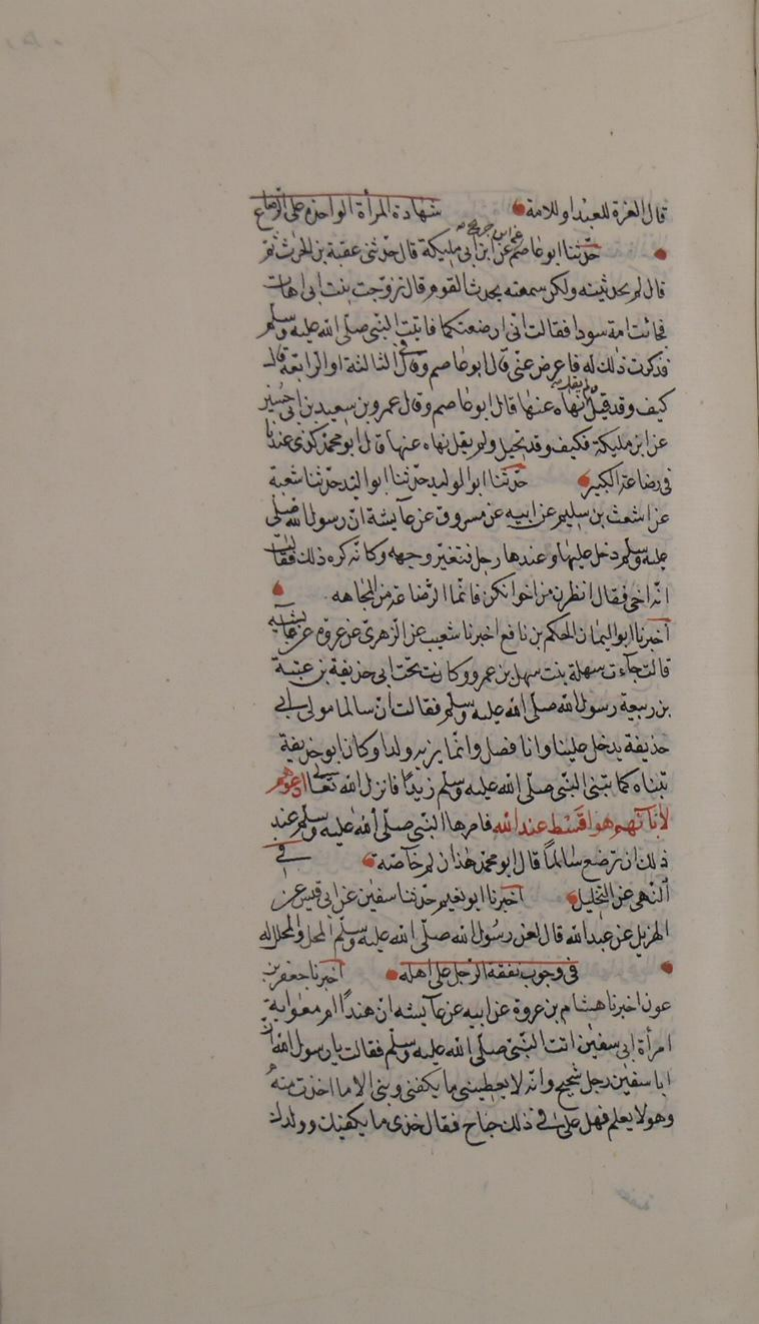 قال الغرة للعبد او للامة شهادة المرأة الواحدة على الرضاع
حدثنا ابو عاصم عن ابن جريج عن ابن ابى مليكة قال حدثنى عقبة بن الحرث ثم
قال لم يحدثينه ولكن سمعته يحدث القوم قال تزوجت بنت ابى اهاب
فجائت امة سودا فقالت انى ارضعتكما فاتيت النبى صلى الله عليه وسلم
فذكرت ذلك له فاعرض عنى قال ابو عاصم وقال فى الثالثة او الرابعة قال
كيف وقد قيل ولم يقل نهاه عنها قال ابو عاصم وقال عمرو بن سعيد بن ابى حسين
عن ابن مليكة فكيف وقد قيل ولم يقل نهاه عنها قال ابو محمد كذى عندنا
فى رضاعة الكبير حدثنا ابو الوليد حدثنا ابو اليد حدثنا شعبة
عن اشعث بن سليم عن ابيه عن مسروق عن عآيشة ان رسول الله صلى
عليه وسلم دخل عليها وعندها رجل فتغير وجهه وكانه كره ذلك فقالت
انه اخى فقال انظرن من اخوانكن فانما الرضاعة من المجاهه
اخبرنا ابو اليمان الحكم بن نافع اخبرنا شعيب عن الزهرى عن عروة عن عآيشيه
قالت جآءت سهلة بنت سهل بن عمرو وكانت تحت ابى حذيفة بن عتبة
بن ربيعة رسول الله صلى الله عليه وسلم فقالت ان سالما مولى ابى
حذيفة يدخل علينا وانا فصل وانما يزيه ولدا وكان ابو حذيفة
تبناه كما تبنى النبى صلى الله عليه وسلم زيدا فانزل الله تعالى ادعوهم
لآبآئهم هو اقسط عند الله فامرها النبى صلى الله عليه وسلم عند
ذلك ان ترضع سالما قال ابو محمد هذا له خآصة فى
النهى عن التحليل اخبرنا ابو نعيم حدثنا سفين عن ابى قيس عن
الهزيل عن عبد الله قال لعن رسول الله صلى الله عليه وسلم المحل والمحلل له
فى وجوب نفقة الرجل على اهله اخبرنا جعفر بن
عون اخبرنا هشام بن عروة عن ابيه عن عآيشه ان هندا ام معاوية
امرأة ابى سفين اتت النبى صلى الله عليه وسلم فقالت يا رسول الله ان
ابا سفين رجل شحيح وانه لا يعطينى ما يكفنى وبنى الا ما اخذت منه
وهو لا يعلم فهل على فى ذلك جناح فقال خذى ما يكفيك وولدك